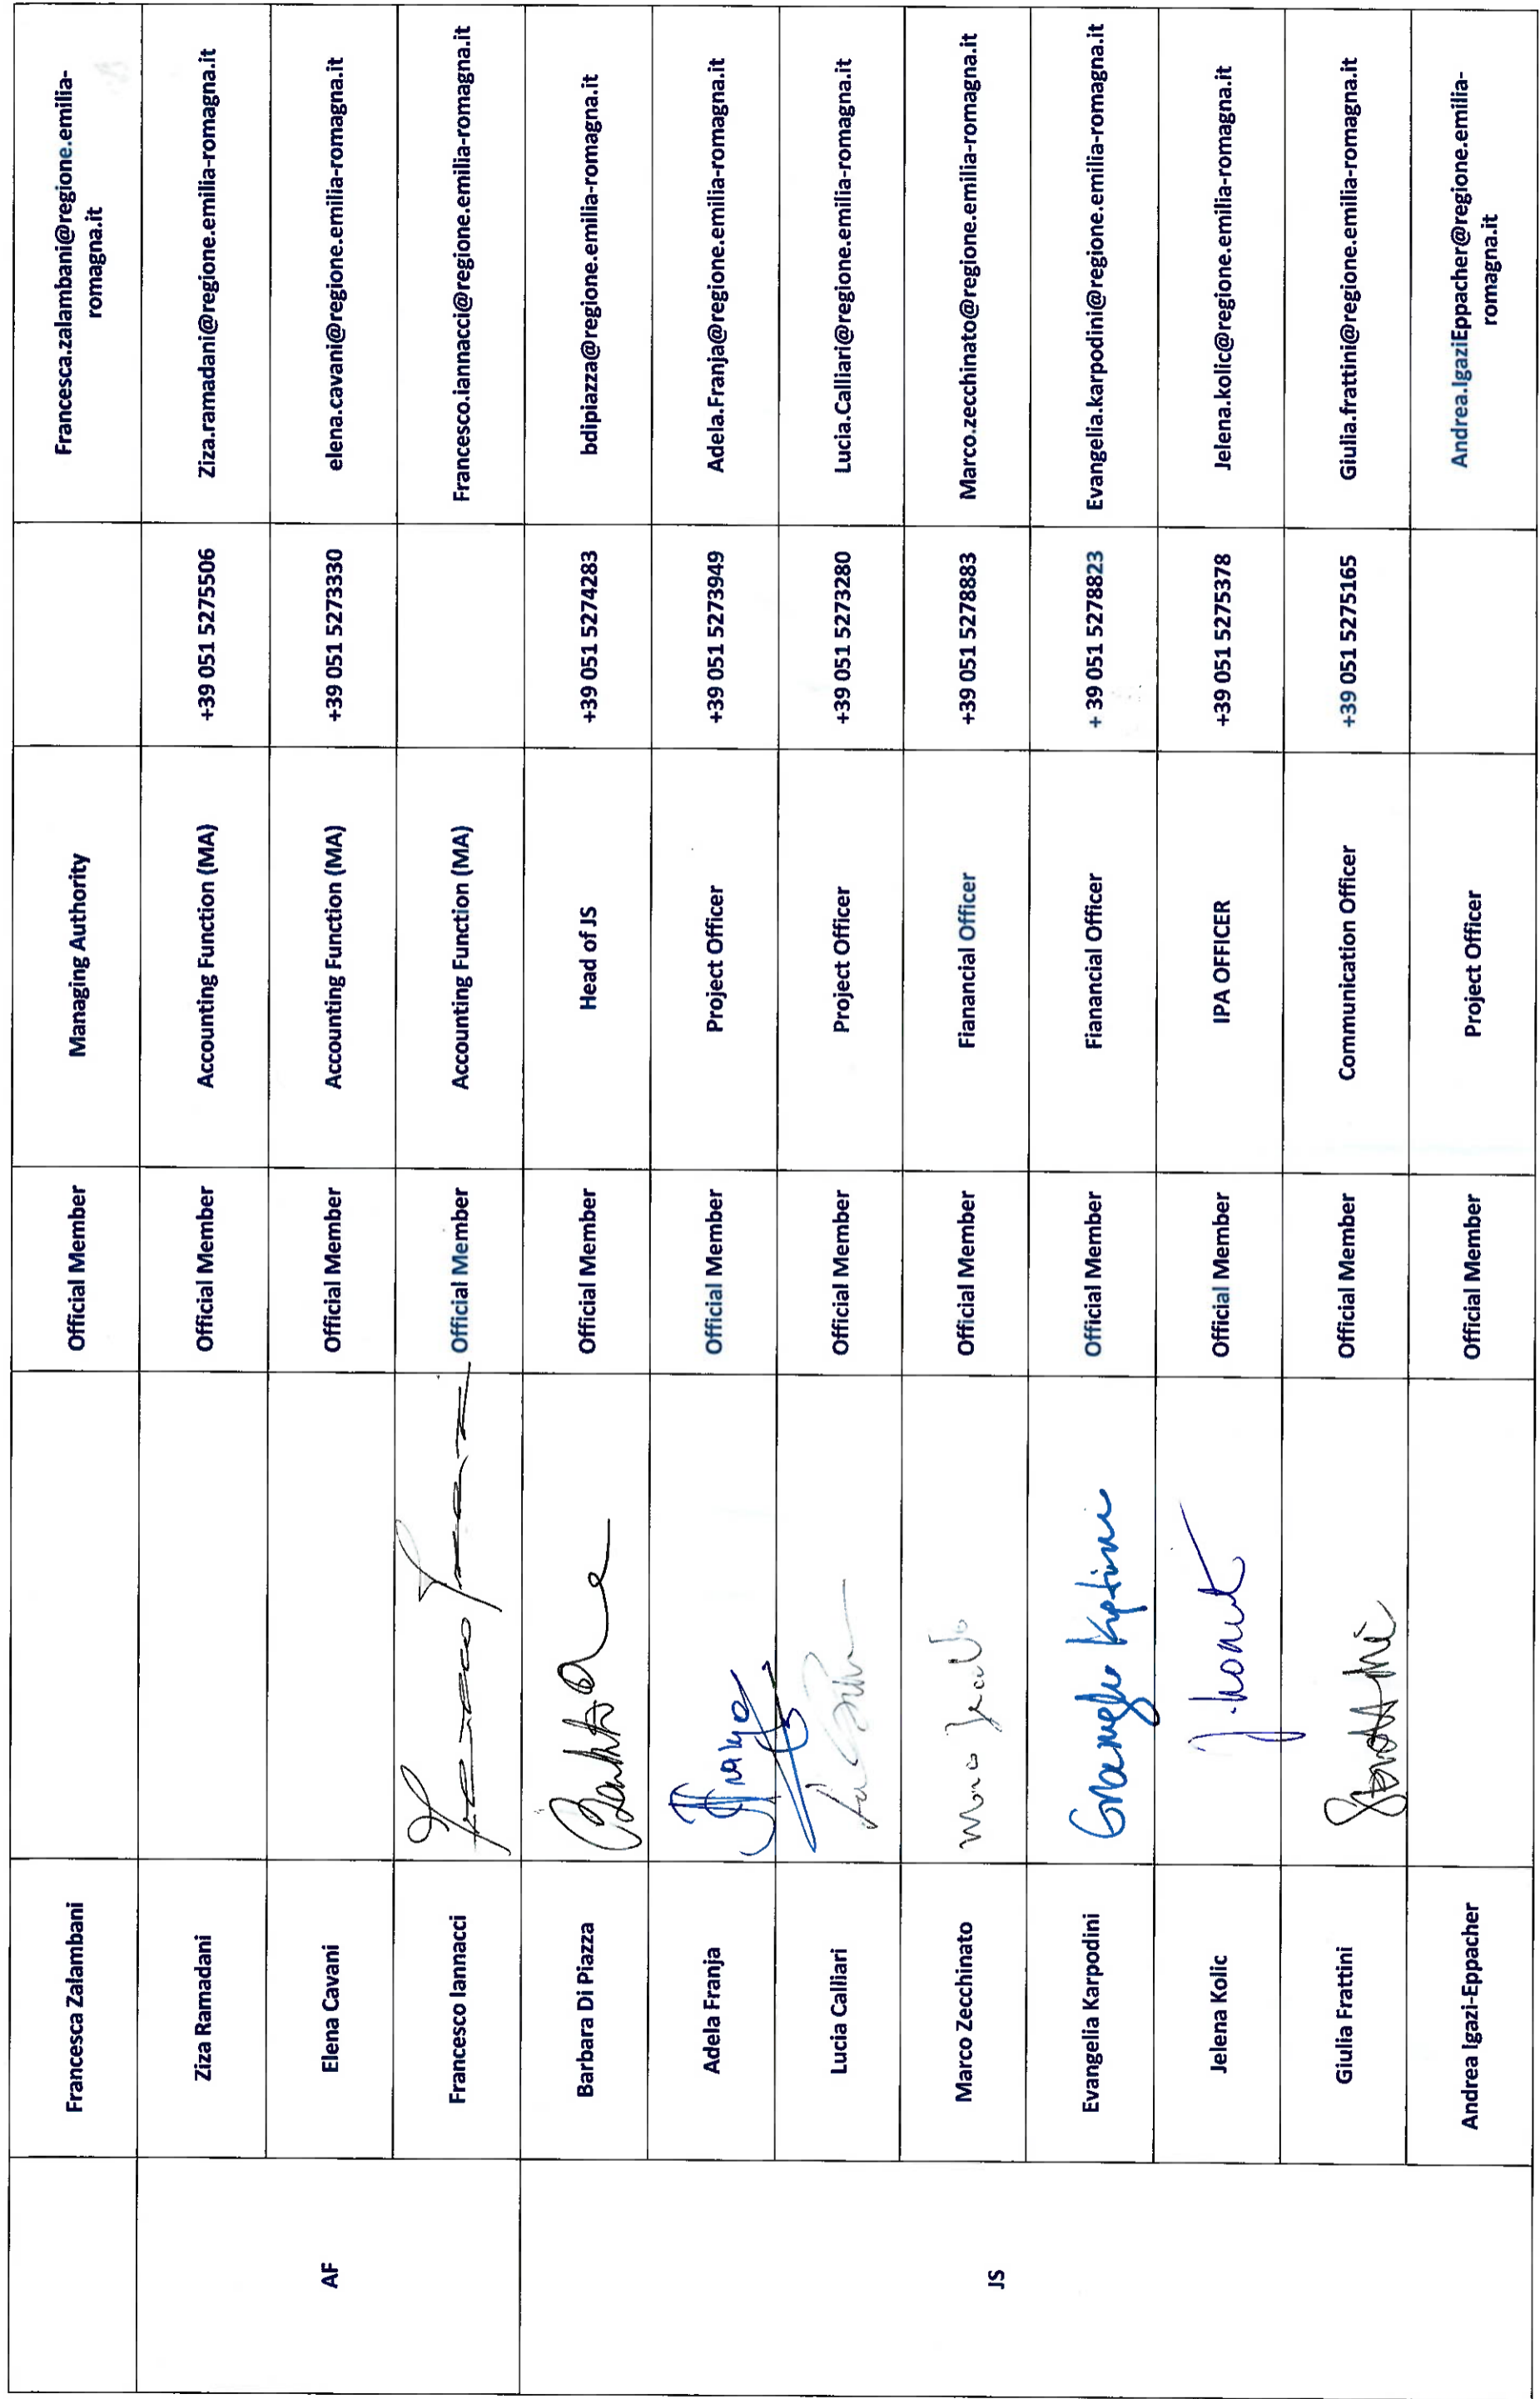 Francesca Zalambani Official Member Managing Authority Francesca.zalambani@regione.emilia-
romagna.it
AF
Ziza Ramadani Official Member Accounting Function (MA) +39 051 5275506 Ziza.ramadani@regione.emilia-romagna.it
Elena Cavani Official Member Accounting Function (MA) +39 051 5273330 elena.cavani@regione.emilia-romagna.it
Francesco Iannacci Official Member Accounting Function (MA) Francesco.iannacci@regione.emilia-romagna.it
JS
Barbara Di Piazza Official Member Head of JS +39 051 5274283 bdipiazza@regione.emilia-romagna.it
Adela Franja Official Member Project Officer +39 051 5273949 Adela.Franja@regione.emilia-romagna.it
Lucia Calliari Official Member Project Officer +39 051 5273280 Lucia.Calliari@regione.emilia-romagna.it
Marco Zecchinato Official Member Fianancial Officer +39 051 5278883 Marco.zecchinato@regione.emilia-romagna.it
Evangelia Karpodini Official Member Fianancial Officer + 39 051 5278823 Evangelia.karpodini@regione.emilia-romagna.it
Jelena Kolic Official Member IPA OFFICER +39 051 5275378 Jelena.kolic@regione.emilia-romagna.it
Giulia Frattini Official Member Communication Officer +39 051 5275165 Giulia.frattini@regione.emilia-romagna.it
Andrea Igazi-Eppacher Official Member Project Officer Andrea.IgaziEppacher@regione.emilia-
romagna.it